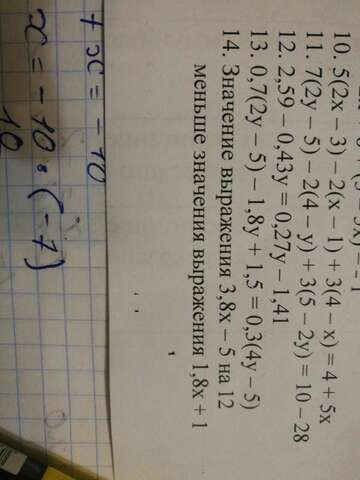 10. 5(2x − 3) − 2(x − 1) + 3(4 − x) = 4 + 5x
11. 7(2y − 5) − 2(4 − y) + 3(5 − 2y) = 10 − 28
12. 2,59 − 0,43y = 0,27y − 1,41
13. 0,7(2y − 5) − 1,8y + 1,5 = 0,3(4y − 5)
14. Значение выражения 3,8x − 5 на 12
меньше значения выражения 1,8x + 1
+ x = − 10
x = − 10 : (− 1)
10